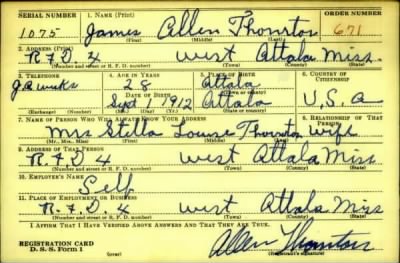 SERIAL NUMBER 1. NAME (Print) ORDER NUMBER
1075 James Allen Thornton 671
(First) (Middle) (Last)
2. ADDRESS (Print)
R.F.D 4 West Attala Miss.
(Number and street or R. F. D. number) (Town) (County) (State)
3. TELEPHONE 4. AGE IN YEARS 5. PLACE OF BIRTH 6. COUNTRY OF CITIZENSHIP
28 Attala
DATE OF BIRTH
Sept 1 1912 Attala U.S.a
(Exchange) (Number) (Mo.) (Day) (Yr.) (State or country)
7. NAME OF PERSON WHO WILL ALWAYS KNOW YOUR ADDRESS 8. RELATIONSHIP OF THAT PERSON
Mrs Stella Louise Thornton wife
(Mr., Mrs., Miss) (First) (Middle) (Last)
9. ADDRESS OF THAT PERSON
R.F.D 4 West Attala Miss
(Number and street or R. F. D. number) (Town) (County) (State)
10. EMPLOYER'S NAME
Self
11. PLACE OF EMPLOYMENT OR BUSINESS
R.F.D. 4 West Attala Miss
(Number and street or R. F. D. number) (Town) (County) (State)
I AFFIRM THAT I HAVE VERIFIED ABOVE ANSWERS AND THAT THEY ARE TRUE.
REGISTRATION CARD
D. S. S. Form 1 (over)
Allen Thornton
(Registrant's signature)